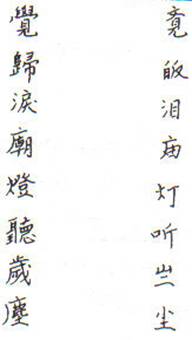 覺 斍
歸 皈
淚 泪
廟 庙
燈 灯
聽 听
歲 亗
塵 尘